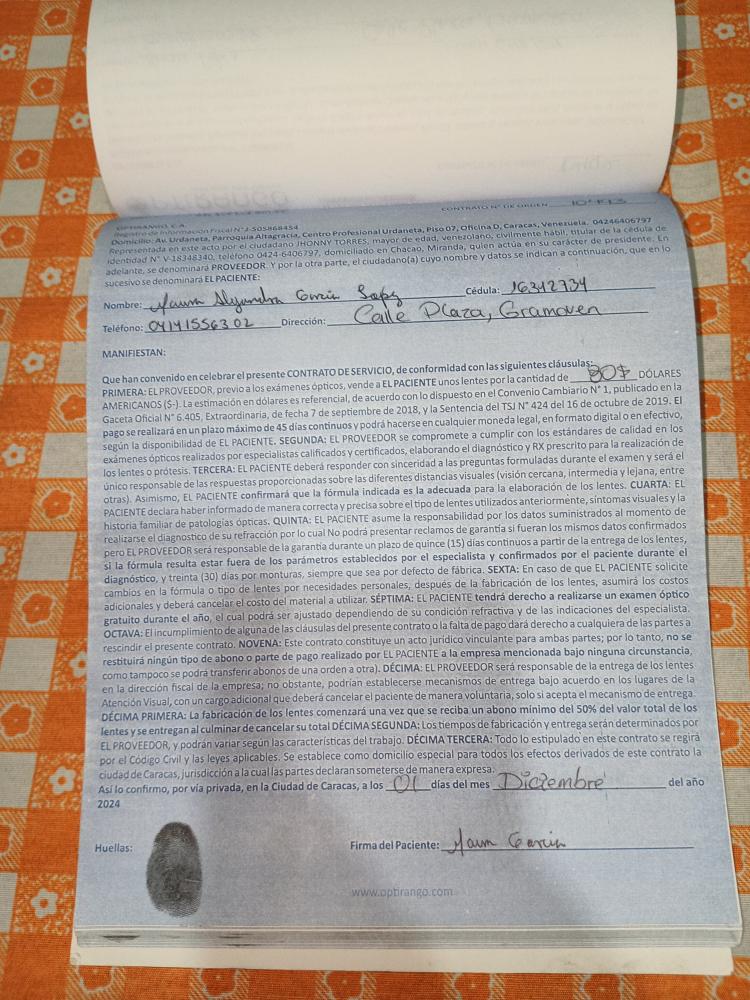 CONTRATO N° DE ORDEN
OPTIRANGO C.A.
Registro de Información Fiscal N° J-505868454
Domicilio: Av. Urdaneta, Parroquia Altagracia, Centro Profesional Urdaneta, Piso 07, Oficina D, Caracas, Venezuela. 04246406797
Representada en este acto por el ciudadano JHONNY TORRES, mayor de edad, venezolano, civilmente hábil, titular de la cédula de
identidad N° V-18348340, teléfono 0424-6406797, domiciliado en Chacao, Miranda, quien actúa en su carácter de presidente. En
adelante, se denominará PROVEEDOR. Y por la otra parte, el ciudadano(a) cuyo nombre y datos se indican a continuación, que en lo
sucesivo se denominará EL PACIENTE:
Nombre: Alejandra Garcia Cédula: 16342734
Teléfono: 04141556302 Dirección: Calle Plaza, Gramoven
MANIFIESTAN:
Que han convenido en celebrar el presente CONTRATO DE SERVICIO, de conformidad con las siguientes cláusulas:
PRIMERA: EL PROVEEDOR, previo a los exámenes ópticos, vende a EL PACIENTE unos lentes por la cantidad de 80$ DÓLARES
AMERICANOS ($-). La estimación en dólares es referencial, de acuerdo con lo dispuesto en el Convenio Cambiario N° 1, publicado en la
Gaceta Oficial N° 6.405, Extraordinaria, de fecha 7 de septiembre de 2018, y la Sentencia del TSJ N° 424 del 16 de octubre de 2019. El
pago se realizará en un plazo máximo de 45 días continuos y podrá hacerse en cualquier moneda legal, en formato digital o en efectivo,
según la disponibilidad de EL PACIENTE. SEGUNDA: EL PROVEEDOR se compromete a cumplir con los estándares de calidad en los
exámenes ópticos realizados por especialistas calificados y certificados, elaborando el diagnóstico y RX prescrito para la realización de
los lentes o prótesis. TERCERA: EL PACIENTE deberá responder con sinceridad a las preguntas formuladas durante el examen y será el
único responsable de las respuestas proporcionadas sobre las diferentes distancias visuales (visión cercana, intermedia y lejana, entre
otras). Asimismo, EL PACIENTE confirmará que la fórmula indicada es la adecuada para la elaboración de los lentes. CUARTA: EL
PACIENTE declara haber informado de manera correcta y precisa sobre el tipo de lentes utilizados anteriormente, síntomas visuales y la
historia familiar de patologías ópticas. QUINTA: EL PACIENTE asume la responsabilidad por los datos suministrados al momento de
realizarse el diagnostico de su refracción por lo cual No podrá presentar reclamos de garantía si fueran los mismos datos confirmados
pero EL PROVEEDOR será responsable de la garantía durante un plazo de quince (15) días continuos a partir de la entrega de los lentes,
si la fórmula resulta estar fuera de los parámetros establecidos por el especialista y confirmados por el paciente durante el
diagnóstico, y treinta (30) días por monturas, siempre que sea por defecto de fábrica. SEXTA: En caso de que EL PACIENTE solicite
cambios en la fórmula o tipo de lentes por necesidades personales, después de la fabricación de los lentes, asumirá los costos
adicionales y deberá cancelar el costo del material a utilizar. SÉPTIMA: EL PACIENTE tendrá derecho a realizarse un examen óptico
gratuito durante el año, el cual podrá ser ajustado dependiendo de su condición refractiva y de las indicaciones del especialista.
OCTAVA: El incumplimiento de alguna de las cláusulas del presente contrato o la falta de pago dará derecho a cualquiera de las partes a
rescindir el presente contrato. NOVENA: Este contrato constituye un acto jurídico vinculante para ambas partes; por lo tanto, no se
restituirá ningún tipo de abono o parte de pago realizado por EL PACIENTE a la empresa mencionada bajo ninguna circunstancia,
como tampoco se podrá transferir abonos de una orden a otra). DÉCIMA: EL PROVEEDOR será responsable de la entrega de los lentes
en la dirección fiscal de la empresa; no obstante, podrían establecerse mecanismos de entrega bajo acuerdo en los lugares de la
Atención Visual, con un cargo adicional que deberá cancelar el paciente de manera voluntaria, solo si acepta el mecanismo de entrega.
DÉCIMA PRIMERA: La fabricación de los lentes comenzará una vez que se reciba un abono mínimo del 50% del valor total de los
lentes y se entregan al culminar de cancelar su total DÉCIMA SEGUNDA: Los tiempos de fabricación y entrega serán determinados por
EL PROVEEDOR, y podrán variar según las características del trabajo. DÉCIMA TERCERA: Todo lo estipulado en este contrato se regirá
por el Código Civil y las leyes aplicables. Se establece como domicilio especial para todos los efectos derivados de este contrato la
ciudad de Caracas, jurisdicción a la cual las partes declaran someterse de manera expresa.
Así lo confirmo, por vía privada, en la Ciudad de Caracas, a los 01 días del mes Diciembre del año
2024
Huellas:
Firma del Paciente: Garcia
www.optirango.com